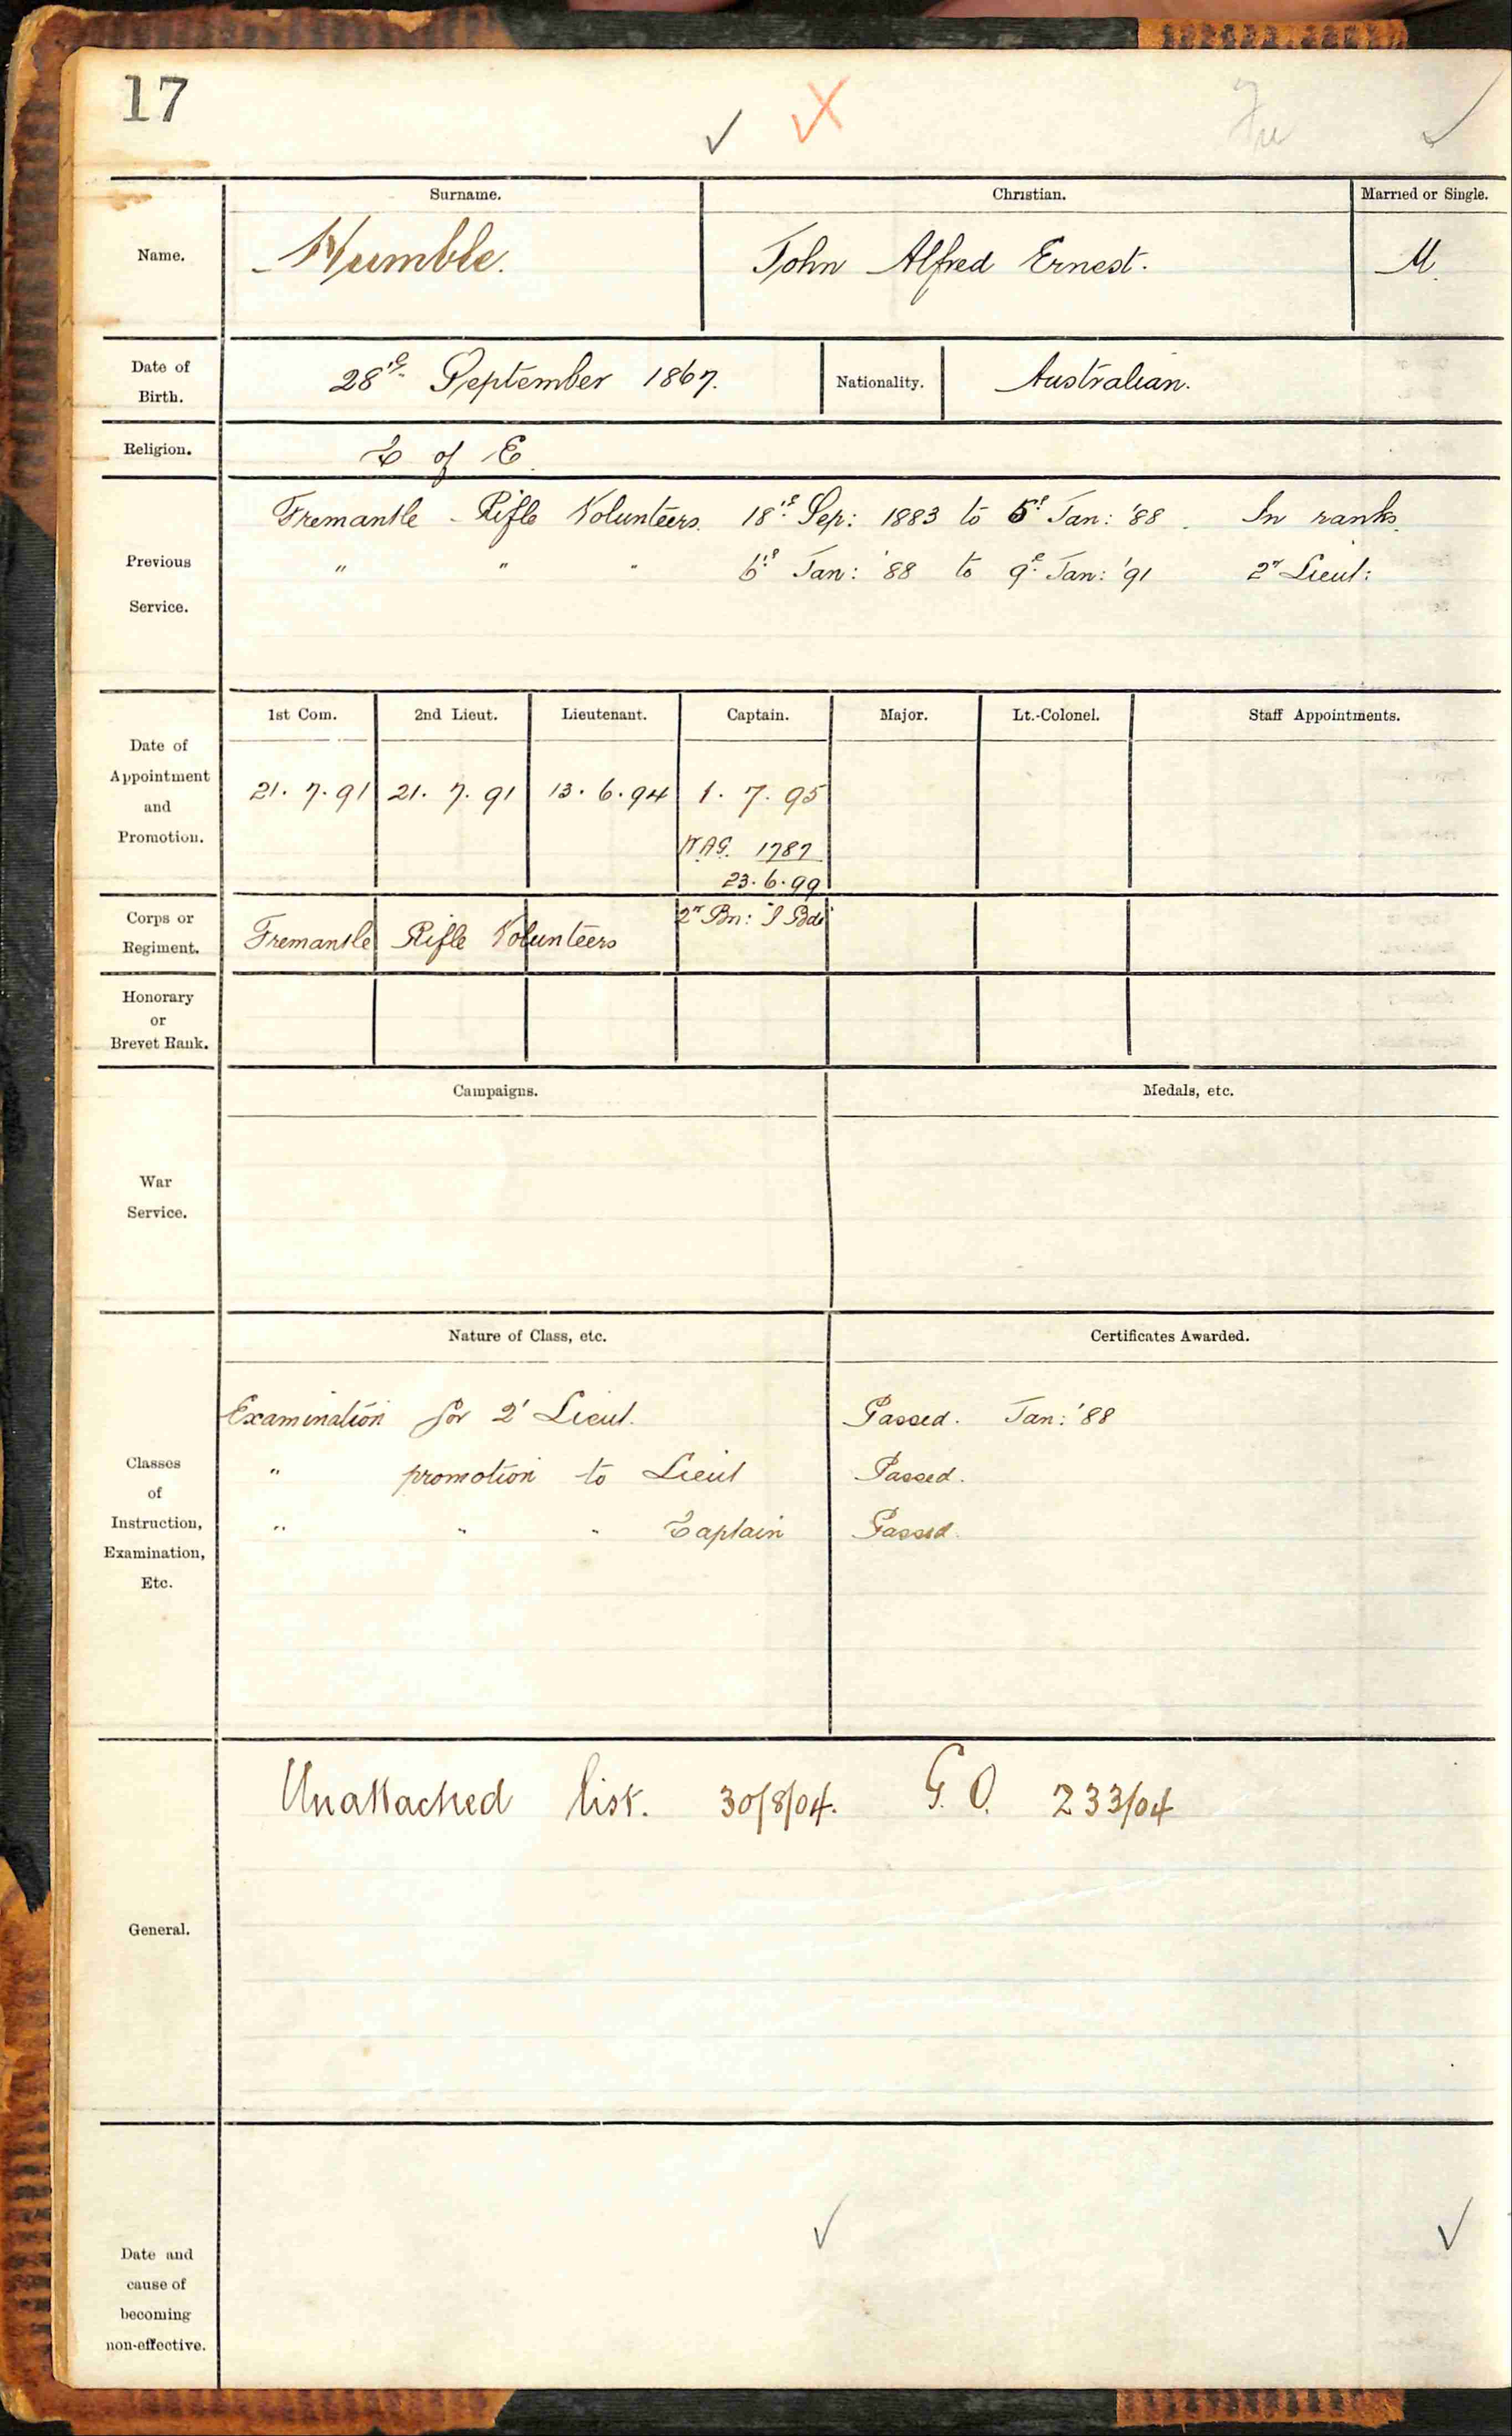 17
Surname. Christian. Married or Single.
Name. Humble. John Alfred Ernest. M.
Date of Birth. 28th September 1867. Nationality. Australian.
Religion. C of E.
Previous Service.
Fremantle Rifle Volunteers. 18th Sep: 1883 to 5th Jan: '88. In ranks.
" " " 6th Jan: '88 to 9th Jan: '91 2nd Lieut:
Date of Appointment and Promotion.
1st Com. 2nd Lieut. Lieutenant. Captain. Major. Lt.-Colonel. Staff Appointments.
21. 7. 91 21. 7. 91 13. 6. 94 1. 7. 95
W.A.G. 1787
23. 6. 99
Corps or Regiment. Fremantle Rifle Volunteers 2nd Bn: I Bde
Honorary or Brevet Rank.
War Service.
Campaigns. Medals, etc.
Classes of Instruction, Examination, Etc.
Nature of Class, etc. Certificates Awarded.
Examination for 2' Lieut. Passed. Jan: '88
" promotion to Lieut Passed.
" " " Captain Passed.
General.
Unattached list. 30/8/04. G.O. 233/04
Date and cause of becoming non-effective.